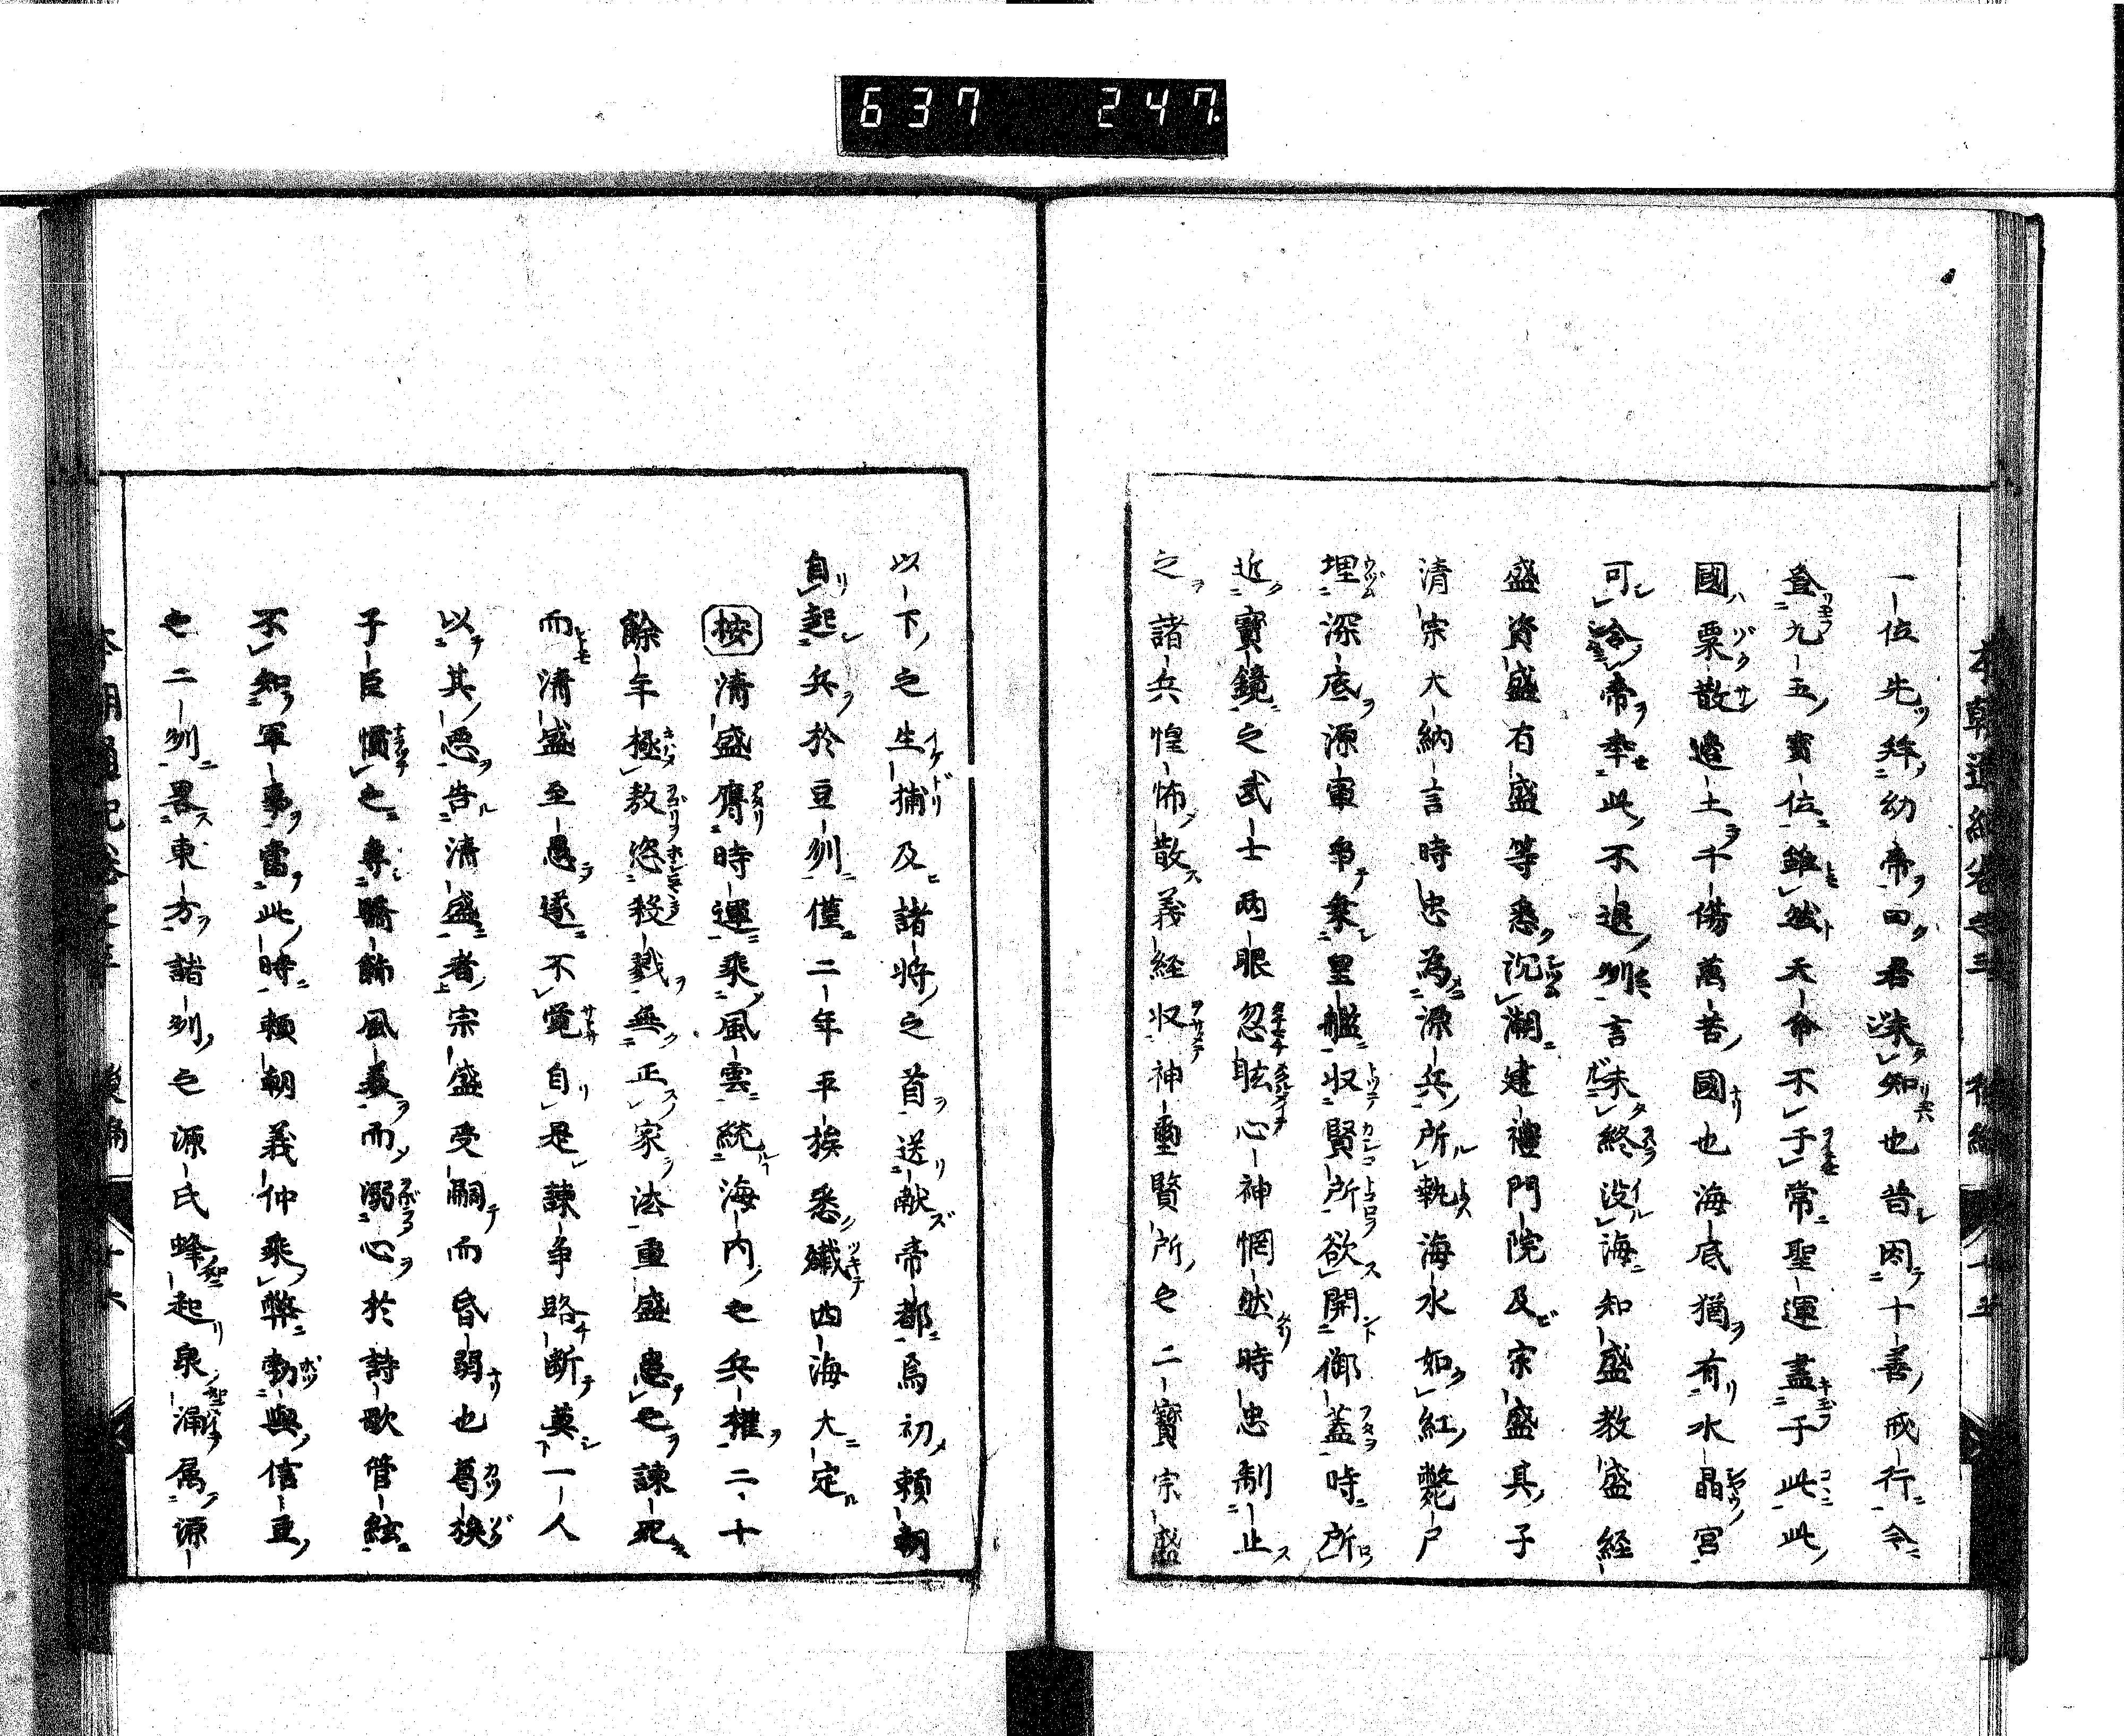 637 247
一位先舜幼帝曰君未知也昔因十善戒行今
登九五寳位雖然天命不于常聖運盡于此此
國粟散邉土千傷萬苦國也海底猶有水晶宮
可冷帝幸此不退州言未終没海知盛教盛経
盛資盛有盛等悉沉湖建禮門院及宗盛其子
清宗大納言時忠為源兵所執海水如紅斃尸
埋深底源軍争乗皇艦収賢所欲開御蓋時所
近寳鏡之武士両眼忽眩心神惘然時忠制止
之諸兵惶怖散義経収神璽賢所之二寳宗盛
以下之生捕及諸将之首送献帝都焉初頼朝
自起兵於豆州僅二年平族悉殲四海大定
按清盛膺時運乘風雲統海内之兵權二十
餘年極敖恣殺戮無正家法重盛患之諌死
而清盛至愚遂不覚自是諌争路断莫一人
以其悪告清盛者宗盛受嗣而昏弱也葛族
子臣慣之専驕飾風義而溺心於詩歌管絃
不知軍事當此時頼朝義仲乘弊勃與信豆
之二州畧東方諸州之源氏蜂起泉涌属源